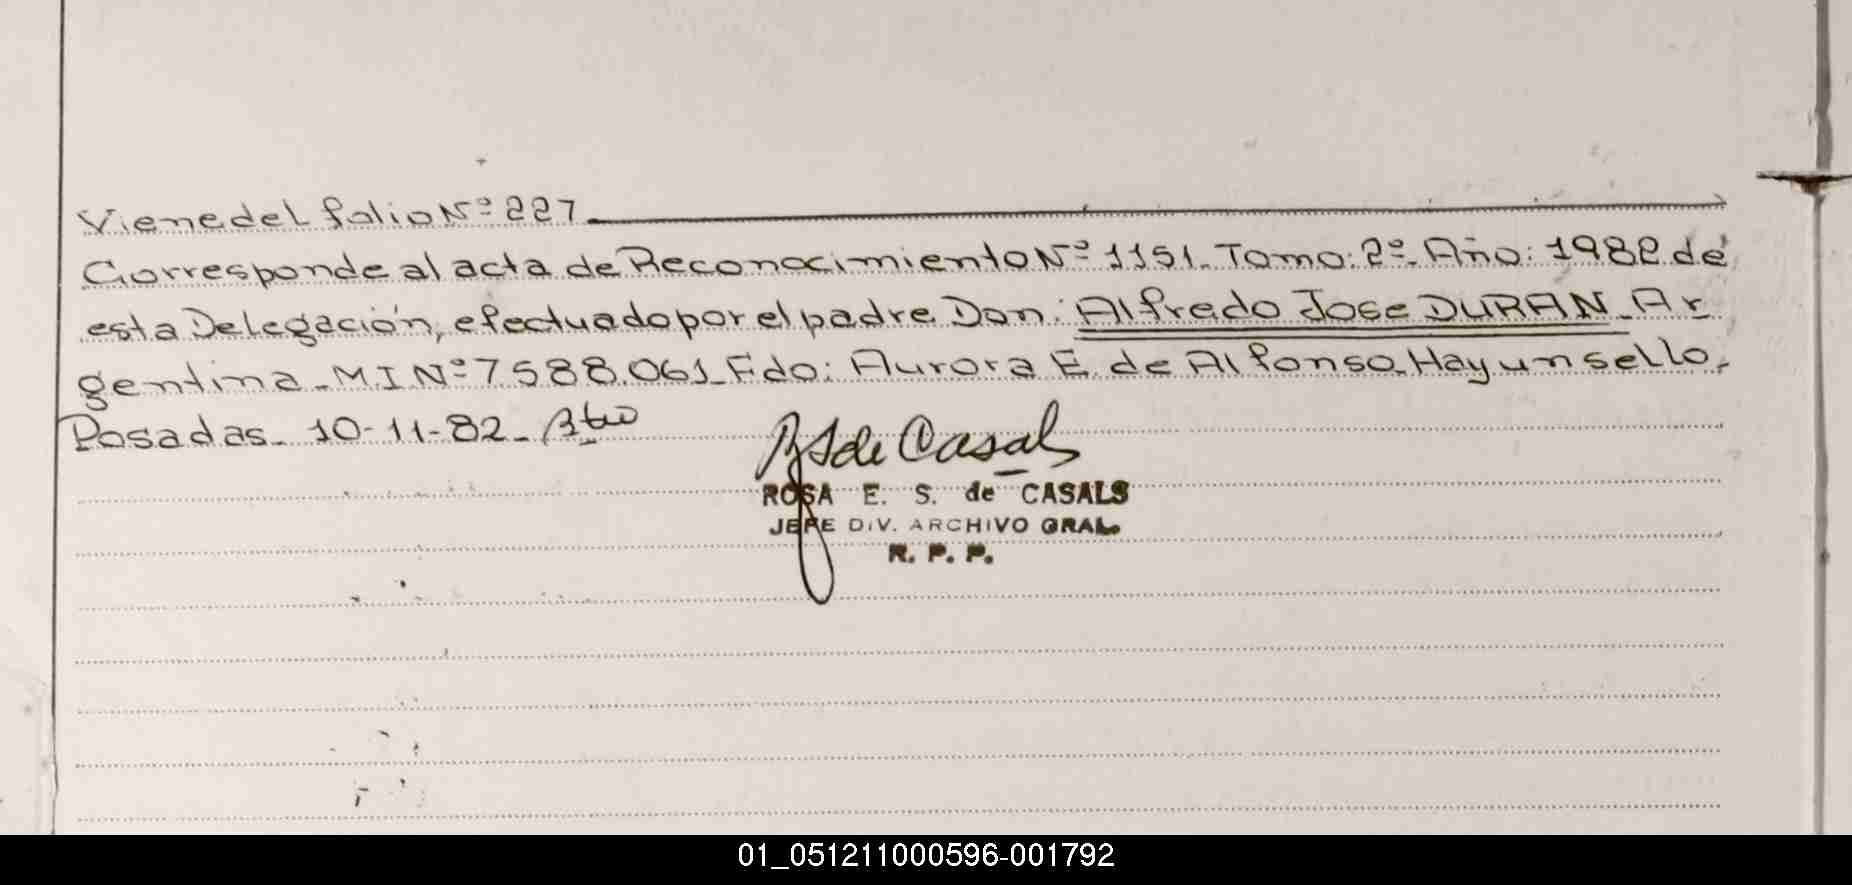 Viene del folio Nº 227
Corresponde al acta de Reconocimiento Nº 1151. Tomo: 2º. Año: 1982 de
esta Delegación, efectuado por el padre Don: Alfredo Jose DURAN. Ar
gentina. M I Nº 7588.061. Fdo: Aurora E. de Alfonso. Hay un sello.
Posadas. 10-11-82.
RS de Casals
ROSA E. S. de CASALS
JEFE DIV. ARCHIVO GRAL.
R. P. P.
01_051211000596-001792